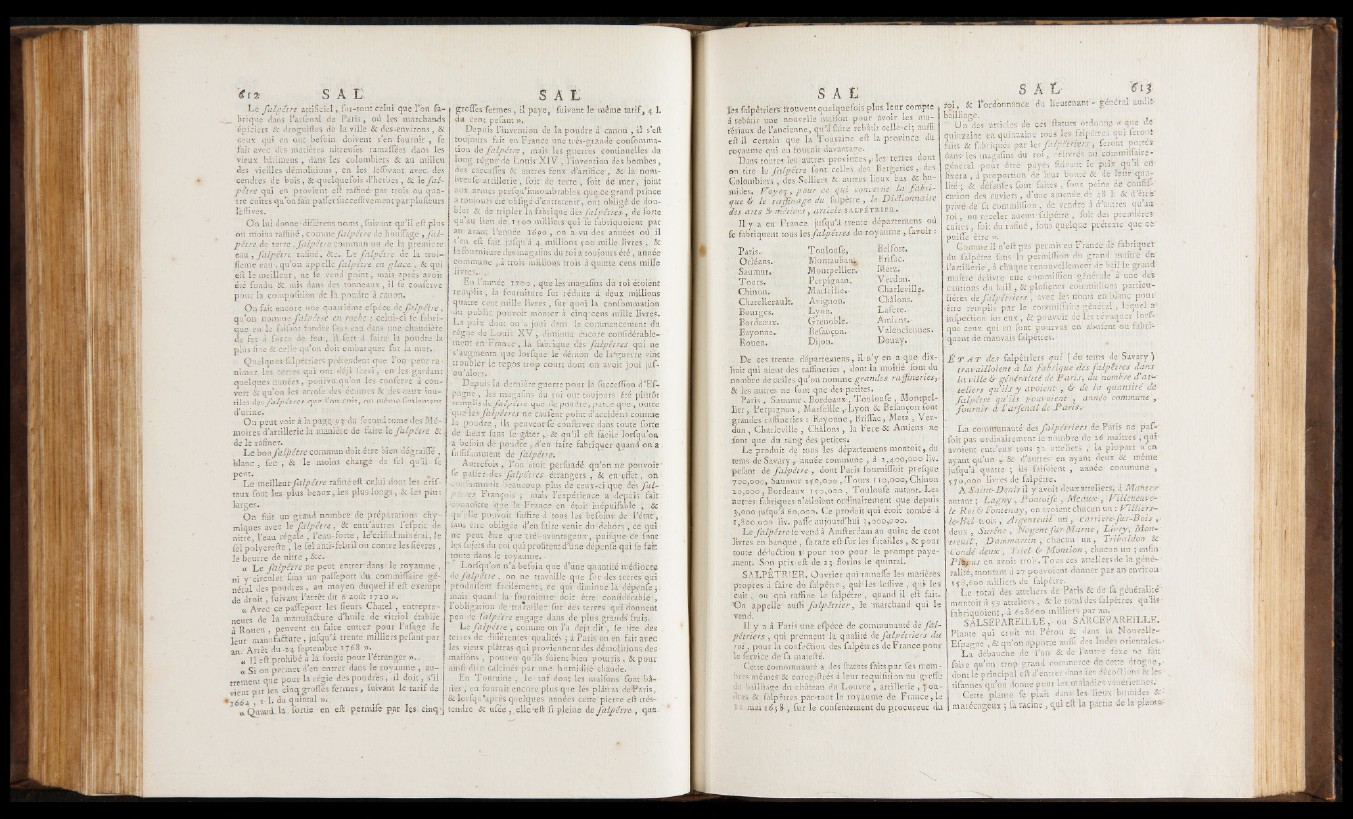 612 S A L
Le salpêtre artificiel, sur-tout celui que l'on fa-
brique dans l'arsénal de Paris, où les marchands
épiciers & droguistes de la ville & des environs, &
ceux qui en ont besoin doivent s'en fournir, se
fait avec des matières nitreuses ramassées dans les
vieux bâtimens, dans les colombiers & au milieu
des vieilles démolitions, en les lessivant avec des
cendres de bois, & quelquefois d'herbes, & le sal-
pêtre qui en provient est raffiné par trois ou qua-
tre cuites qu'on fait passer successivement par plusieurs
lessives.
On lui donne différens noms, suivant qu'il est plus
ou moins raffiné, comme salpêtre de houssage, sal-
pêtre de terre, salpêtre commun ou de la première
eau, salpêtre raffiné, &c. Le salpêtre de la troi-
sième eau, qu'on appelle salpêtre en glace, & qui
est le meilleur, ne se vend point, mais après avoir
été fondu & mis dans des tonneaux, il se conserve
pour la composition de la poudre à canon.
On fait encore une quatrième espèce de salpêtre,
qu'on nomme salpêtre en roche : celui-ci se fabri-
que en le faisant fondre sans eau dans une chaudière
de fer à force de feu, il sert à faire la poudre la
plus fine & celle qu'on doit embarquer sur la mer.
Quelques salpêtriers prétendent que l'on peut ra-
nimer les terres qui ont déjà servi, en les gardant
quelques années, pourvu qu'on les conserve à cou-
vert & qu'on les arrose des écumes & des eaux inu-
tiles des salpêtres que l'on cuit, ou même seulement
d'urine.
On peut voir à la page 93 du second tome des Mé-
moires d'artillerie la manière de faire le salpêtre &
de le raffiner.
Le bon salpêtre commun doit être bien dégraissé,
blanc, sec, & le moins chargé de sel qu'il se
peut.
Le meilleur salpêtre raffiné est celui dont les cris-
taux sont les plus beaux, les plus longs, & les plus
larges.
On fait un grand nombre de préparations chy-
miques avec le salpêtre, & entr'autres l'esprit de
nitre, l'eau régale, l'eau-forte, le cristal minéral, le
sel polycreste, le sel anti-fébril ou contre les fièvres,
le beurre de nitre, &c.
« Le salpêtre ne peut entrer dans le royaume,
ni y circuler sans un passeport du commissaire gé-
néral des poudres, au moyen duquel il est exempt
de droit, suivant l'arrêt du 6 août 1720 ».
« Avec ce passeport les sieurs Chatel, entrepre-
neurs de la manufacture d'huile de vitriol établie
à Rouen, peuvent en faire entrer pour l'usage de
leur manufacture, jusqu'à trente milliers pesant par
an. Arrêt du 24 septembre 1768 ».
« Il est prohibé à la sortie pour l'étranger ».
« Si on permet d'en entrer dans le royaume, au-
trement que pour la régie des poudres, il doit, s'il
vient par les cinq grosses fermes, suivant le tarif de
1664, 1 l. du quintal ».
« Quand la sortie en est permise par les cinq
S A L
grosses fermes, il paye, suivant le même tarif, 4 l.
du cent pesant ».
Depuis l'invention de la poudre à canon, il s'est
toujours fait en France une très-grande consomma-
tion de salpêtre, mais les guerres continuelles du
long règne de Louis XIV, l'invention des bombes,
des carcasses & autres feux d'artifice, & la nom-
breuse artillerie, soit de terre, soit de mer, joint
aux armes presqu'innombrables que ce grand prince
a toujours été obligé d'entretenir, ont obligé de dou-
bler & de tripler la fabrique des salpêtres, de sorte
qu'au lieu de 1500 milliers qui se fabriquoient par
an avant l'année 1690, on a vu des années où il
s'en est fait jusqu'à 4 millions 500 mille livres, &
la fourniture des magasins du roi a toujours été, année
commune, à trois millions trois à quatre cens mille
livres.
En l'année 1700, que les magasins du roi étoient
remplis, la fourniture fut réduite à deux millions
quatre cent mille livres, sur quoi la consommation
du public pouvoit monter à cinq cens mille livres.
La paix dont on a joui dans le commencement du
règne de Louis XV, diminua encore considérable-
ment en France, la fabrique des salpêtres qui ne
s'augmenta que lorsque le démon de la guerre vint
troubler le repos trop court dont on avoit joui jus-
qu'alors.
Depuis la dernière guerre pour la succession d'Es-
pagne, les magasins du roi ont toujours été plutôt
remplis de salpêtre que de poudre, parce que, outre
que les salpêtres ne causent point d'accidens comme
la poudre, ils peuvent se conserver dans toute sorte
de lieux sans se gâter, & qu'il est facile lorsqu'on
a besoin de poudre, d'en faire fabriquer quand on a
suffisamment de salpêtre.
Autrefois, l'on étoit persuadé qu'on ne pouvoit
se passer des salpêtres étrangers, & en effet, on
consommoit beaucoup plus de ceux-ci que des sal-
pêtres François ; mais l'expérience a depuis fait
connoître que la France en étoit inépuisable, &
qu'elle pouvoit suffire à tous les besoins de l'état,
sans être obligée d'en faire venir du dehors, ce qui
ne peut être que très-avantageux, puisque ce sont
les sujets du roi qui profitent d'une dépense qui se fait
toute dans le royaume.
Lorsqu'on n'a besoin que d'une quantité médiocre
de salpêtre, on ne travaille que sur des terres qui
produisent facilement, ce qui diminue la dépense ;
mais quand la fourniture doit être considérable,
l'obligation de travailler sur des terres qui donnent
peu de salpêtre engage dans de plus grands frais.
Le salpêtre, comme on l'a déjà dit, se tire des
terres de différentes qualités ; à Paris on en fait avec
les vieux plâtras qui proviennent des démolitions des
maisons, pourvu qu'ils soient bien pourris, & pour
ainsi dire calcinés par une humidité chaude.
En Touraine, le tuf dont les maisons sont bâ-
ties, en fournit encore plus que les plâtras de Paris,
& lorsqu'après quelques années cette pierre est très-
tendre & usée, elle est si pleine de salpêtre, que
S A L
les salpêtriers trouvent quelquefois plus leur compte
à rebâtir une nouvelle maison pour avoir les ma-
tériaux de l'ancienne, qu'à faire rebâtir celle-ci ; aussi
est-il certain que la Touraine est la province du
royaume qui en fournit davantage.
Dans toutes les autres provinces, les terres dont
on tire le salpêtre sont celles des Bergeries, des
Colombiers, des Selliers & autres lieux bas & hu-
mides. Voyez, pour ce qui concerne la fabri-
que & le raffinage du salpêtre, le Dictionnaire
des arts & métiers, article SALPÊTRIER.
Il y a en France jusqu'à trente départemens où
se fabriquent tous les salpêtres du royaume, savoir :
Paris. Toulouse. Belfort.
Orléans. Montauban. Brissac.
Saumur. Montpellier. Metz.
Tours. Perpignan. Verdun.
Chinon. Marseille. Charleville.
Chatellerault. Avignon. Châlons.
Bourges. Lyon. Lafere.
Bordeaux. Grenoble. Amiens.
Bayonne. Besançon. Valenciennes.
Rouen. Dijon. Douay.
De ces trente départemens, il n'y en a que dix-
huit qui aient des raffineries, dont la moitié sont du
nombre de celles qu'on nomme grandes raffineries,
& les autres ne sont que des petites.
Paris, Saumur, Bordeaux, Toulouse, Montpel-
lier, Perpignan, Marseille, Lyon & Besançon sont
grandes raffineries : Bayonne, Brissac, Metz, Ver-
dun, Charleville, Châlons, la Fere & Amiens ne
sont que du rang des petites.
Le produit de tous les départemens montoit, du
tems de Savary, année commune, à 3,400,000 liv.
pesant de salpêtre, dont Paris fournissoit presque
700,000, Saumur 150,000, Tours 110,000, Chinon
20,000, Bordeaux 150,000, Toulouse autant. Les
autres fabriques n'alloient ordinairement que depuis
3,000 jusqu'à 80,000. Ce produit qui étoit tombé à
1,800,000 liv. passe aujourd'hui 3,000,000.
Le salpêtre se vend à Amsterdam au quint de cent
livres en banque, sa tare est sur les futailles, & pour
toute déduction 1 pour 100 pour le prompt paye-
ment. Son prix est de 23 florins le quintal.
SALPÊTRIER. Ouvrier qui ramasse les matières
propres à faire du salpêtre, qui les lessive, qui les
cuit, ou qui raffine le salpêtre, quand il est fait.
On appelle aussi salpêtrier, le marchand qui le
vend.
Il y a à Paris une espèce de communauté de sal-
pêtriers, qui prennent la qualité de salpêtriers du
roi, pour la confection des salpêtres de France pour
le service de sa majesté.
Cette communauté a des statuts faits par ses mem-
bres mêmes & enregistrés à leur requisition au greffe
du bailliage du château du Louvre, artillerie, pou-
dres & salpêtres par-tout le royaume de France, le
11 mai 1658, sur le consentement du procureur du
S A L 613
roi, & l'ordonnance du lieutenant-général audit
bailliage.
Un des articles de ces statuts ordonne « que de
quinzaine en quinzaine tous les salpêtres qui seront
faits & fabriqués par les salpêtriers, seront portés
dans les magasins du roi, délivrés au commissaire-
général pour être payés suivant le prix qu'il en
fixera, à proportion de leur bonté & de leur qua-
lité ; & défenses sont faites, sous peine de confis-
cation des cuviers, d'une amende de 28 l. & d'être
privé de sa commission, de vendre à d'autres qu'au
roi, ou receler aucun salpêtre, soit des premières
cuites, soit du raffiné, sous quelque prétexte que ce
puisse être ».
Comme il n'est pas permis en France de fabriquer
du salpêtre sans la permission du grand maître de
l'artillerie, à chaque renouvellement de bail le grand
maître délivre une commission générale à une des
cautions du bail, & plusieurs commissions particu-
lières de salpêtriers, avec les noms en blanc pour
être remplis par le commissaire-général, lequel a
inspection sur eux, & pouvoir de les révoquer lors-
que ceux qui en sont pourvus en abusent ou fabri-
quent de mauvais salpêtres.
ÉTAT des salpêtriers qui (du tems de Savary)
travailloient à la fabrique des salpêtres dans
la ville & généralité de Paris, du nombre d'at-
teliers qu'ils y avoient, & de la quantité de
salpêtre qu'ils pouvoient, année commune,
fournir à l'arsenal de Paris.
La communauté des salpêtriers de Paris ne pas-
soit pas ordinairement le nombre de 26 maîtres, qui
avoient entr'eux tous 52 atteliers ; la plupart n'en
ayant qu'un, & d'autres en ayant deux & même
jusqu'à quatre ; ils faisoient, année commune,
570,000 livres de salpêtre.
A Saint-Denis il y avoit deux atteliers, à Mantes
autant ; Lagny, Pontoise, Meaux, Villeneuve-
le-Roi & Fontenay, en avoient chacun un : Villiers-
le-Bel trois, Argenteuil un, Carrière-sur-Bois,
deux, Surêne, Nogent sur Marne, Livry, Mon-
treuil, Dammartin, chacun un, Tribaldon &
Condé deux, Triel & Montion, chacun un ; enfin
en avoit trois. Tous ces atteliers de la géné-
ralité, montant à 27 pouvoient donner par an environ
158,000 milliers de salpêtre.
Le total des atteliers de Paris & de sa généralité
montoit à 59 atteliers, & le total des salpêtres qu'ils
fabriquoient, à 628600 milliers par an.
SALSEPAREILLE, ou SARCEPAREILLE.
Plante qui croît au Pérou & dans la Nouvelle-
Espagne, & qu'on apporte aussi des Indes orientales.
La débauche de l'un & de l'autre sexe ne fait
faire qu'un trop grand commerce de cette drogue,
dont le principal est d'entrer dans les décoctions & les
tisannes qu'on donne pour les maladies vénériennes.
Cette plante se plaît dans les lieux humides &
marécageux ; sa racine, qui est la partie de la plante